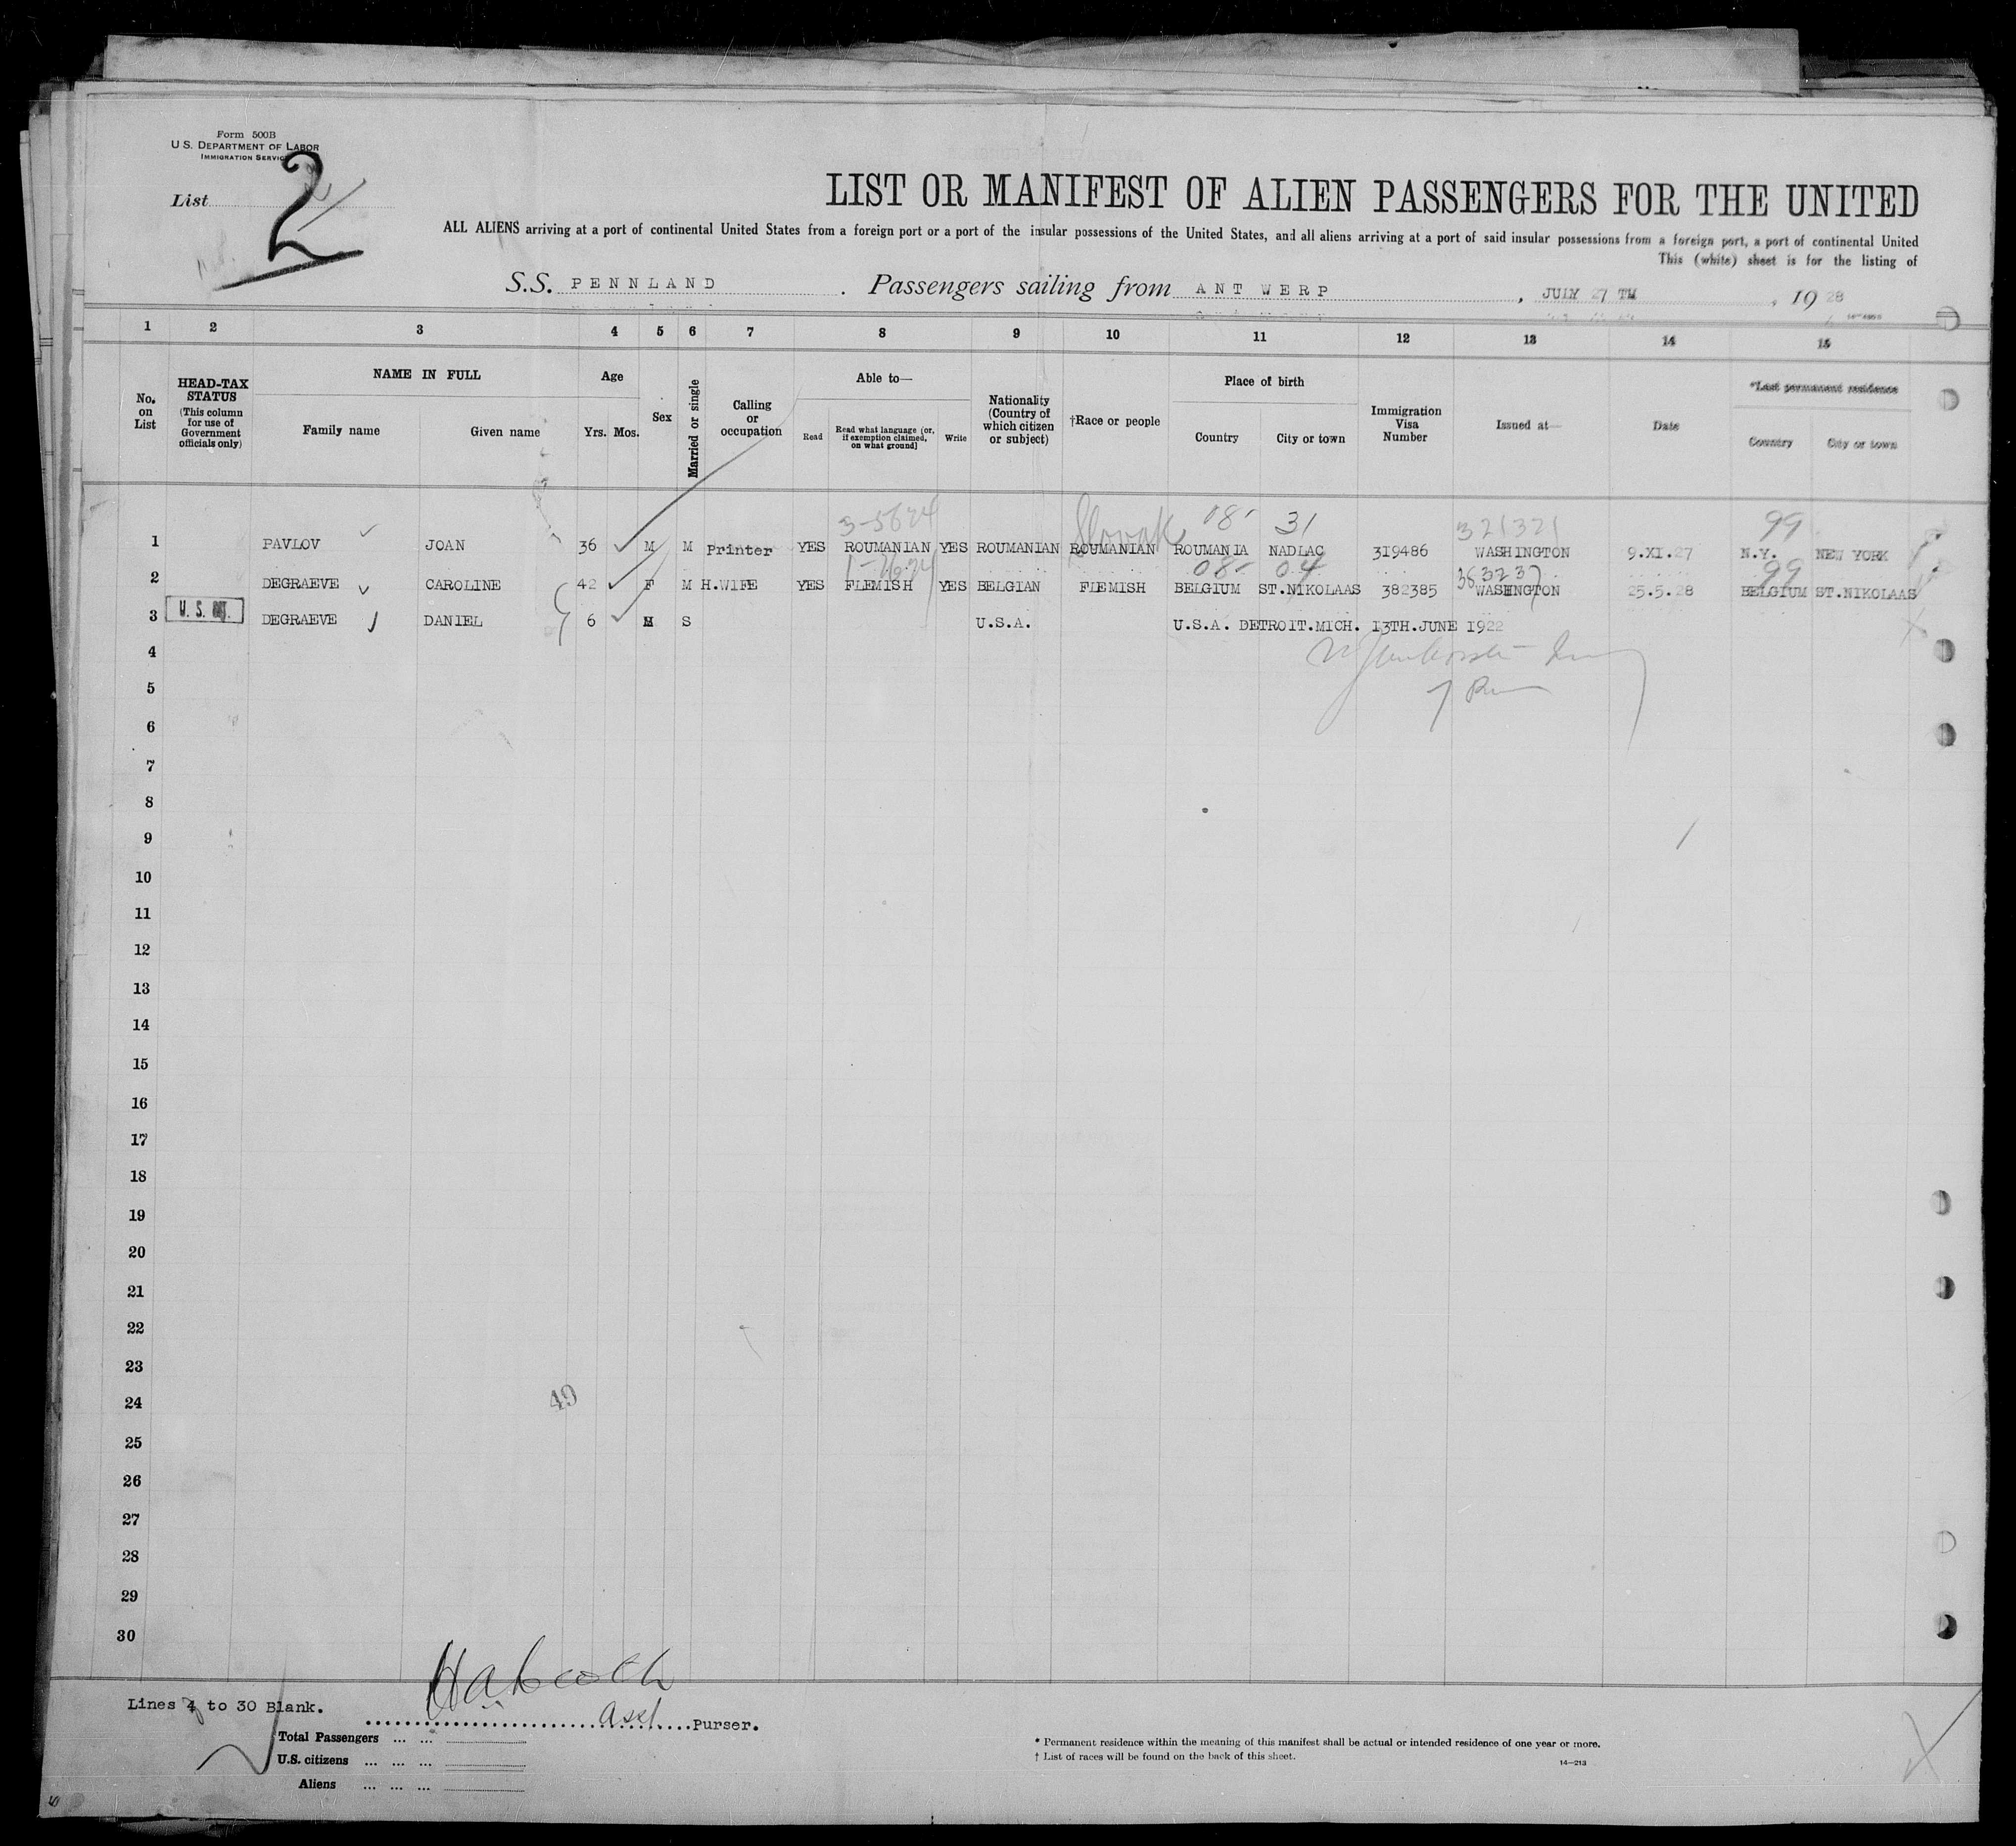 Form 500B
U.S. DEPARTMENT OF LABOR
IMMIGRATION SERVICE
List 2
LIST OR MANIFEST OF ALIEN PASSENGERS FOR THE UNITED
ALL ALIENS arriving at a port of continental United States from a foreign port or a port of the insular possessions of the United States, and all aliens arriving at a port of said insular possessions from a foreign port, a port of continental United
This (white) sheet is for the listing of
S.S. PENNLAND . Passengers sailing from ANTWERP , JULY 27 TH , 19 28
1 2 3 4 5 6 7 8 9 10 11 12 13 14 15
No. on List
HEAD-TAX STATUS (This column for use of Government officials only)
NAME IN FULL
Family name Given name
Age
Yrs. Mos.
Sex
Married or single
Calling or occupation
Able to—
Read
Read what language [or, if exemption claimed, on what ground]
Write
Nationality (Country of which citizen or subject)
†Race or people
Place of birth
Country City or town
Immigration Visa Number
Issued at—
Date
*Last permanent residence
Country City or town
3-5624 Slovak 08- 31 321321 99
1 PAVLOV JOAN 36 M M Printer YES ROUMANIAN YES ROUMANIAN ROUMANIAN ROUMANIA NADLAC 319486 WASHINGTON 9.XI.27 N.Y. NEW YORK
08- 04 383237 99
2 DEGRAEVE CAROLINE 42 F M H.WIFE YES FLEMISH YES BELGIAN FLEMISH BELGIUM ST.NIKOLAAS 382385 WASHINGTON 25.5.28 BELGIUM ST.NIKOLAAS
3 DEGRAEVE DANIEL 6 M S U.S.A. U.S.A. DETROIT.MICH. 13TH.JUNE 1922
4
5
6
7
8
9
10
11
12
13
14
15
16
17
18
19
20
21
22
23
24
49
25
26
27
28
29
30
Lines 4 to 30 Blank.
Asst. Purser.
Total Passengers ... ...
U.S. citizens ... ... ...
Aliens ... ... ...
* Permanent residence within the meaning of this manifest shall be actual or intended residence of one year or more.
† List of races will be found on the back of this sheet.
14—213